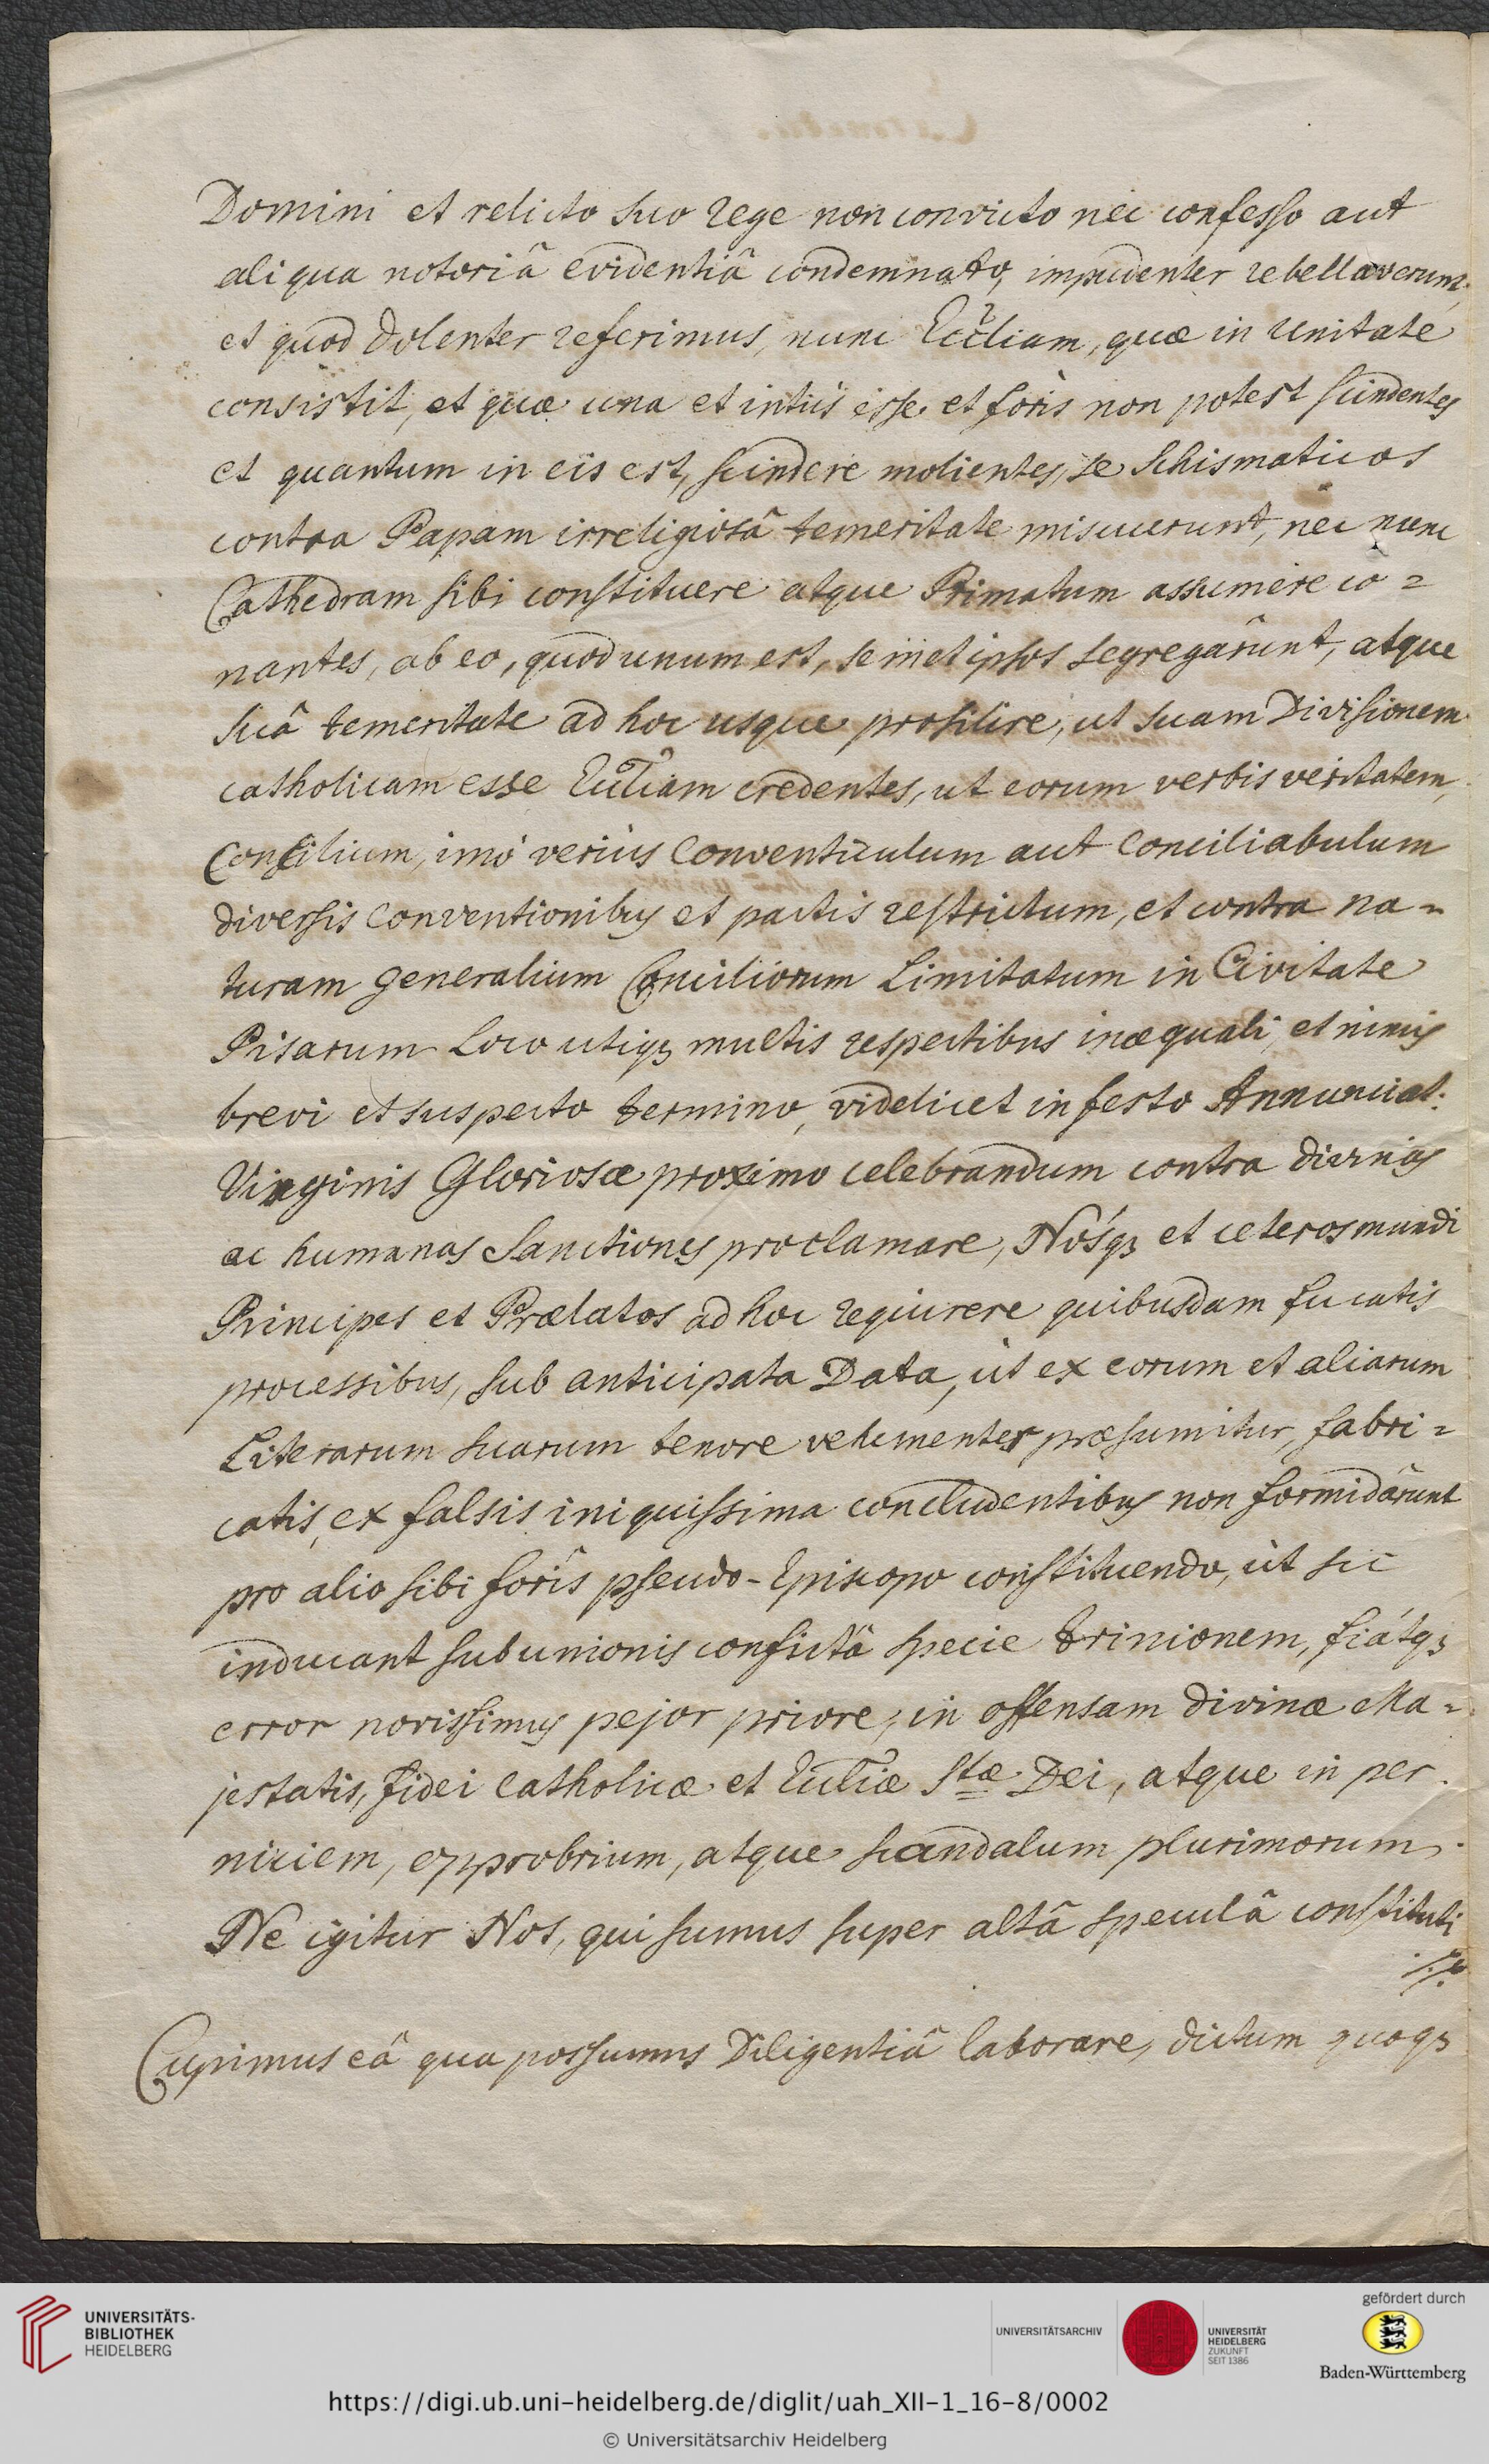 Domini et relicto suo rege non convicto nec confesso aut
aliqua notoriâ evidentiâ condemnato, impudenter rebellaverunt,
et quod dolenter referimus, nunc Eccliam, quæ in unitate
consistit, et quæ una et intùs esse et foris non potest scindentes
et quantum in eis est, scindere molientes, se Schismaticos
contra Papam irreligiosâ temeritate miscuerunt, nec nunc
Cathedram sibi constituere atque Primatum assumere co=
nantes, ab eo, quod unum est, semetipsos segregârunt, atque
suâ temeritate ad hoc usque prosilire, ut suam Divisionem
catholicam esse Eccliam credentes, ut eorum verbis veritatem,
Consilium, imò veriùs Conventiculum aut Conciliabulum
diversis Conventionibus et pactis restrictum, et contra na=
turam generalium Conciliorum Limitatum in Civitate
Pisarum Loco utiqꝫ multis respectibus inæquali, et nimis
brevi et suspecto termino, videlicet in festo Annunciat:
Virginis Gloriosæ proximo celebrandum contra divinas
ac humanas Sanctiones proclamare, Nósqꝫ et ceteros mundi
Principes et Prælatos ad hoc requirere quibusdam fucatis
processibus, sub anticipata Data, ùt ex eorum et aliarum
Literarum suarum tenore vehementer præsumitur, fabri=
catis, ex falsis iniquissima concludentibus non formidârunt
pro alio sibi foris pseudo-Episcopo constituendo, ùt sic
inducant sub unionis confictâ specie trinionem, fiátqꝫ
error novissimus pejor priore, in offensam divinæ Ma=
jestatis, fidei catholicæ et Eccliæ Stæ Dei, atque in per
niciem, opprobrium, atque scandalum plurimorum.
Ne igitur Nos, qui sumus super altâ speculâ constituti
./.
Cupimus eâ qua possumus Diligentiâ laborare, dictum quoqꝫ
UNIVERSITÄTS-
BIBLIOTHEK
HEIDELBERG
UNIVERSITÄTSARCHIV
UNIVERSITÄT
HEIDELBERG
ZUKUNFT
SEIT 1386
gefördert durch
Baden-Württemberg
https://digi.ub.uni-heidelberg.de/diglit/uah_XII-1_16-8/0002
© Universitätsarchiv Heidelberg